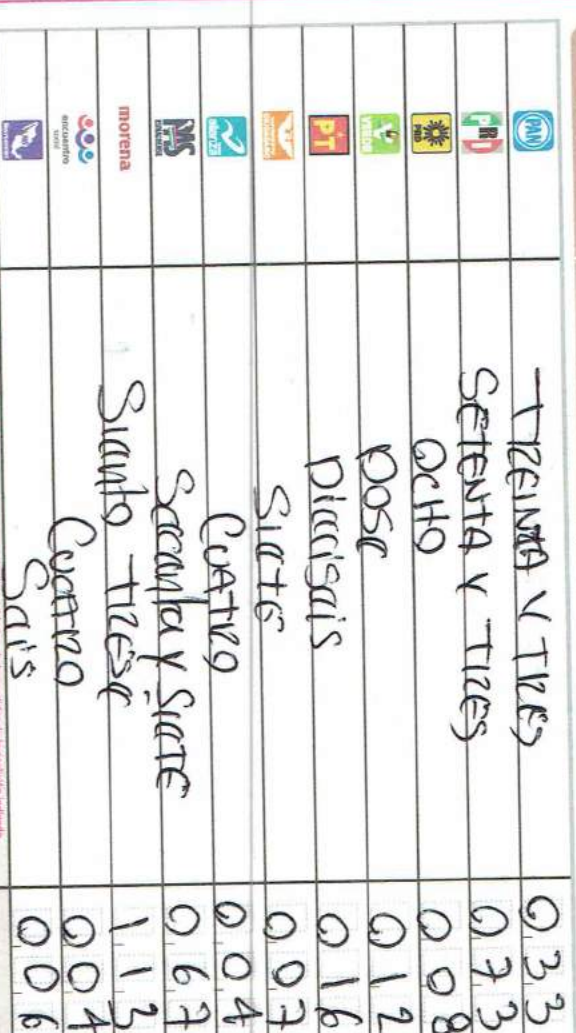 PAN TREINTA Y TRES 033
PRI SETENTA Y TRES 073
PRD OCHO 008
VERDE DOSe 012
PT DieciSeis 016
Siete 007
alianza CUATRO 004
MAS Secenta y Siete 067
morena Siento TRESe 113
encuentro social CUATRO 004
Seis 006